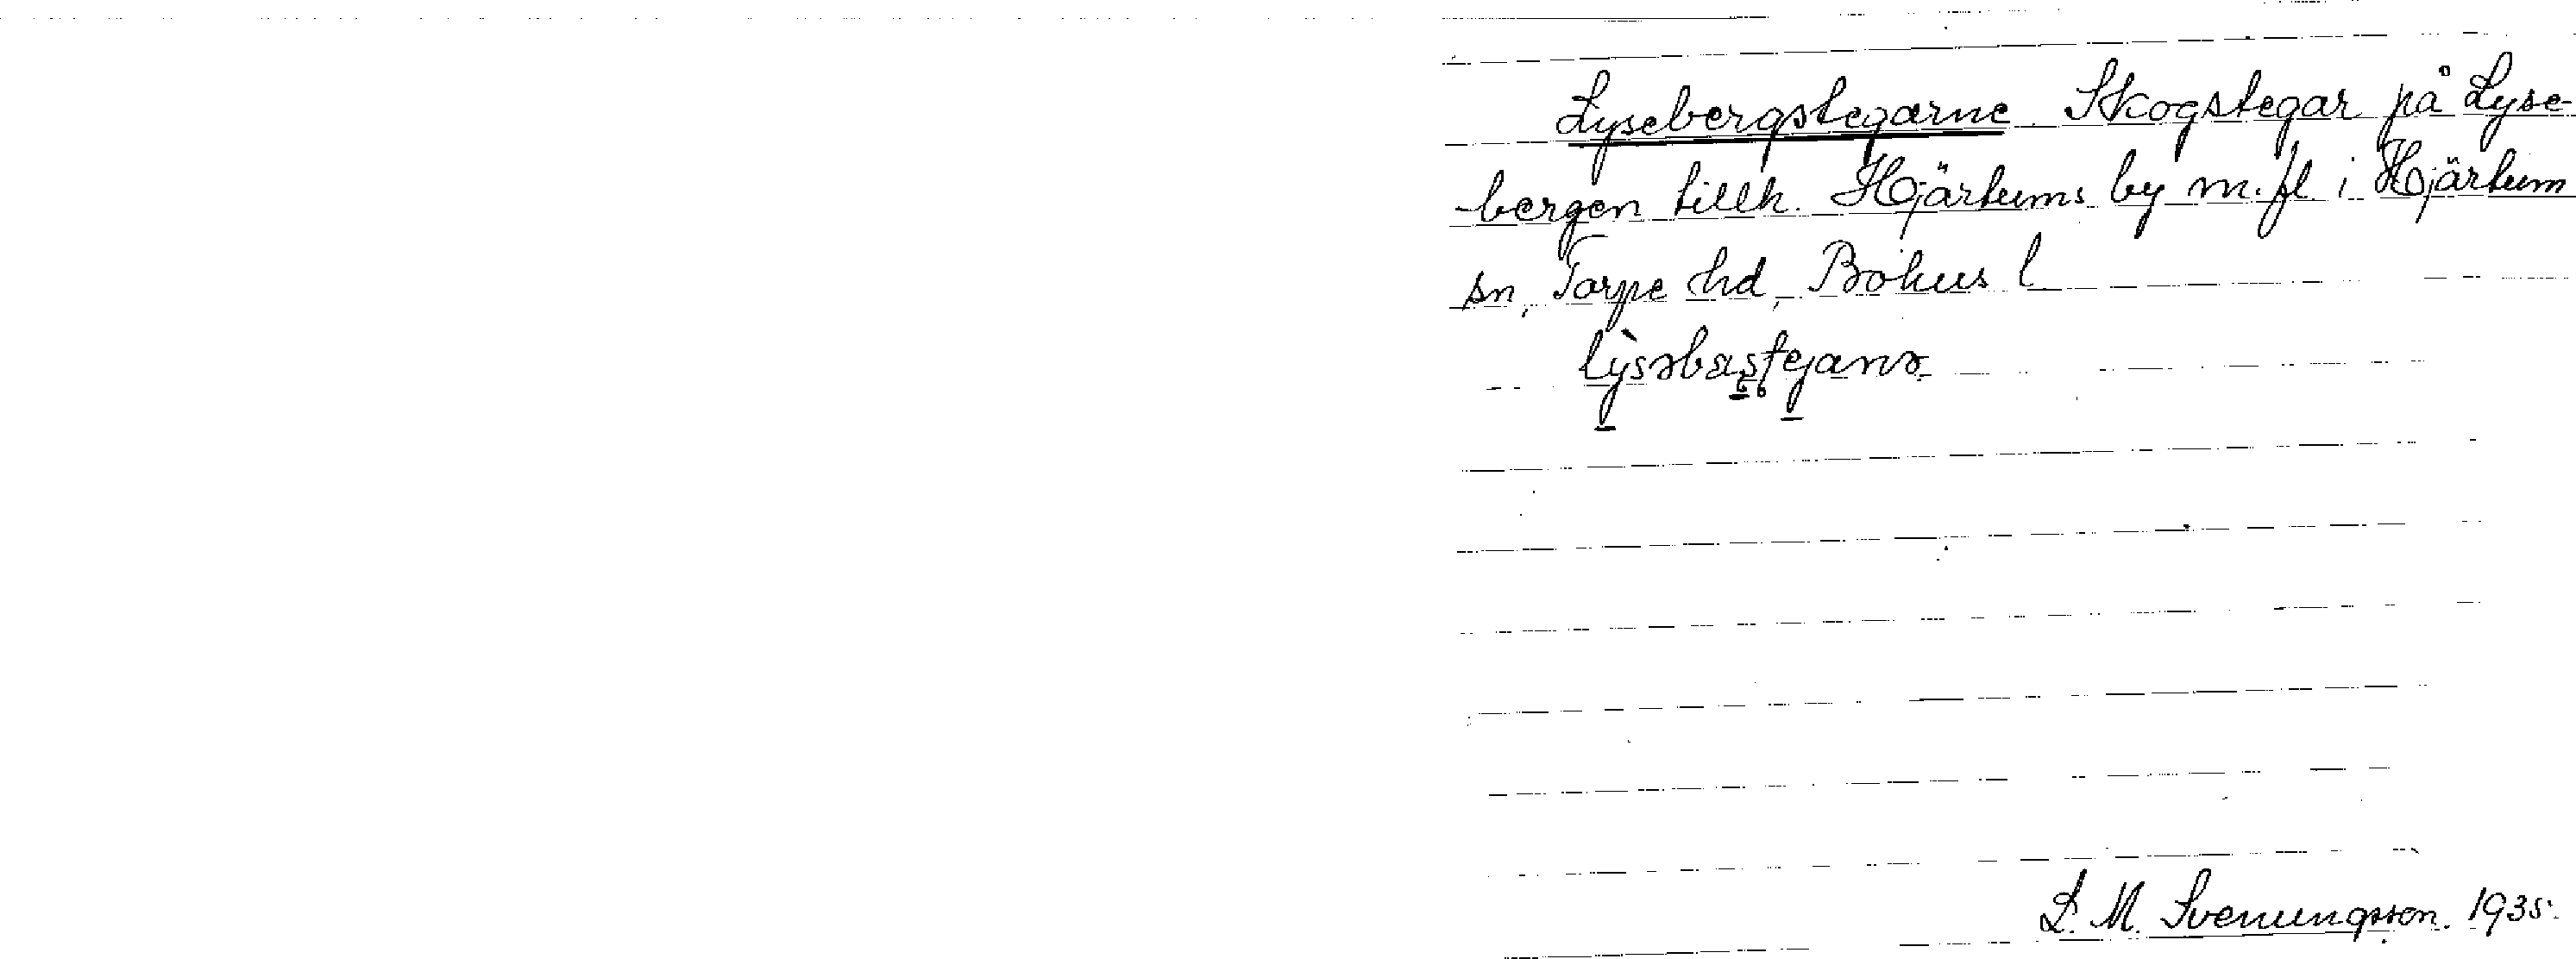 Lysebergstegarne. Skogstegar på Lyse-
-bergen tillh. Hjärtums by m.fl. i Hjärtum
sn, Torpe hd, Bohus l
L. M. Svenungsson. 1935.